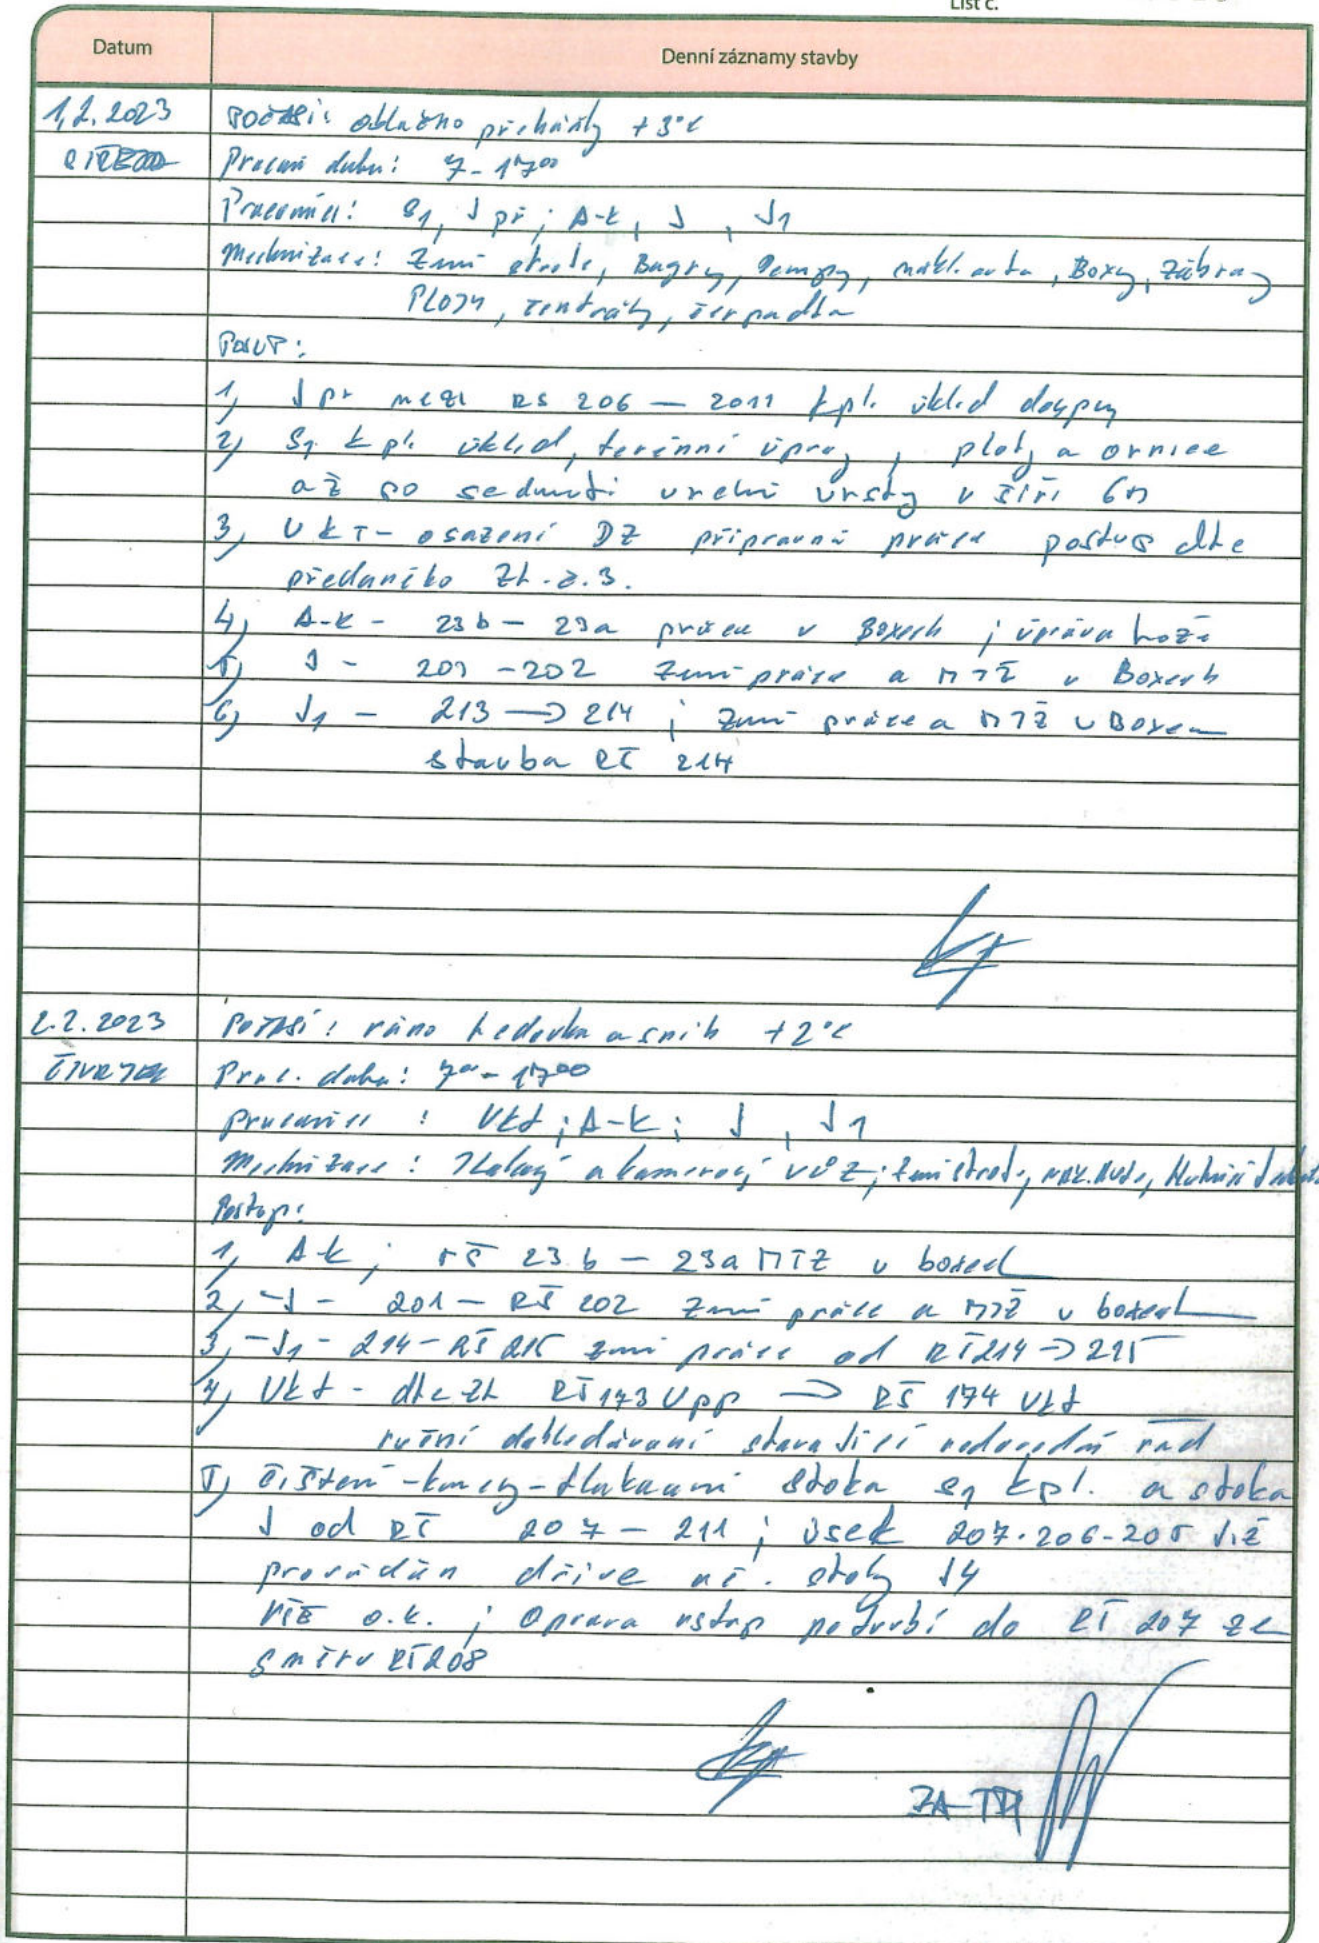 List č.
Datum
Denní záznamy stavby
1.2.2023 Počasí: oblačno přeháňky +3°C
Pracovní doba: 7-17⁰⁰
Pracovníci: S1, J př; A-K, J, J1
Mechnizace: Zemní stroje, Bagry, Pumpy, nákl. auta, Boxy, Zábrany
Ploty, centrály, čerpadla
Postup:
1, J př mezi RŠ 206 — 2011 kpl. úklid
2, S1 kpl. úklid, terénní úpravy, ploty a ornice
až po sedmutí vrchní vrstvy v šíři 6m
3, VKT - osazení DZ přípravné práce postup dle
předaného Zl. č. 3.
4, A-K - 23b - 23a práce v Boxech; úprava
5, J - 201 - 202 Zemní práce a MTŽ v Boxech
6, J1 - 213 → 214; Zemní práce a MTŽ v Boxech
stavba RŠ 214
2.2.2023 Počasí: ráno ledovka a sníh +2°C
čtvrtek Prac. doba: 7⁰⁰-17⁰⁰
Pracovníci: VKT; A-K; J, J1
Mechnizace: Tlakový a kamerový vůz; Zemní stroje, nák. Auta,
Postup:
1, A-K; rŠ 23b - 23a MTŽ v boxech
2, -J- 201 - RŠ 202 Zemní práce a MTŽ v boxech
3, -J1 - 214 - RŠ 215 zemní práce od RŠ 214 → 215
4, VKT - dle zl RŠ 173 Vpp → RŠ 174 VKT
ruční dohledávaní stávající vodovodní řad
5, čištění - kamery - tlakování stoka S1 kpl. a stoka
J od RŠ 207 - 211; úsek 207-206-205 již
prováděn dříve stoky J4
vše o.k.; Oprava vstup potrubí do RŠ 207 ze
směru RŠ 208